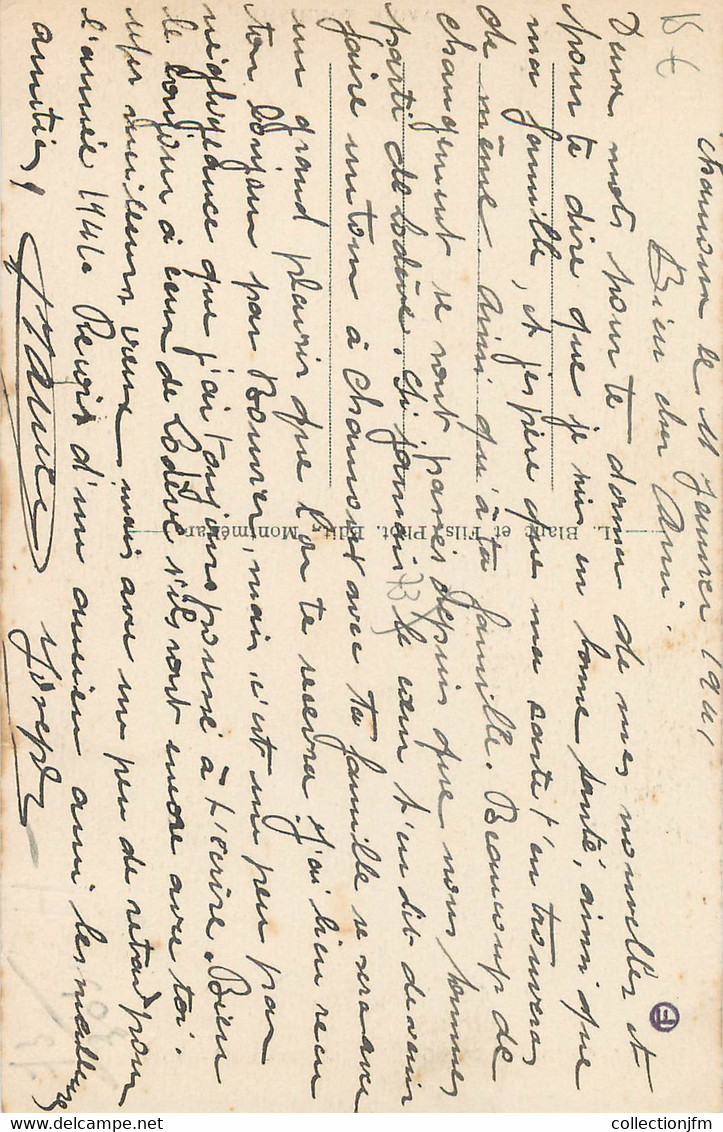 Chamoux le 11 Janvier 1941
Bien cher Ami.
Deux mots pour te donner de mes nouvelles et
pour te dire que je suis en bonne santé, ainsi que
ma famille, et j'espère que ma carte t'en trouvera
de même. Ainsi qu'à ta famille. Beaucoup de
changement se sont passés depuis que nous sommes
parti de Lodève. Si jamais le cœur t'en dit de venir
faire un tour à Chamoux avec ta famille se sera avec
un grand plaisir que l'on te recevra. J'ai bien reçu
ton bonjour par Bouvier, mais c'est un peu par
négligeance que j'ai toujours poussé à t'écrire. Bien
le bonjour à ceux de Lodève s'ils sont encore avec toi.
mes meilleurs vœux mais avec un peu de retard pour
l'année 1941. Reçois d'un ancien ami les meilleures
amitiés
Joseph
L. Blanc et Fils, Phot. Edit., Montmélian
15 €
73
F
collectionjfm